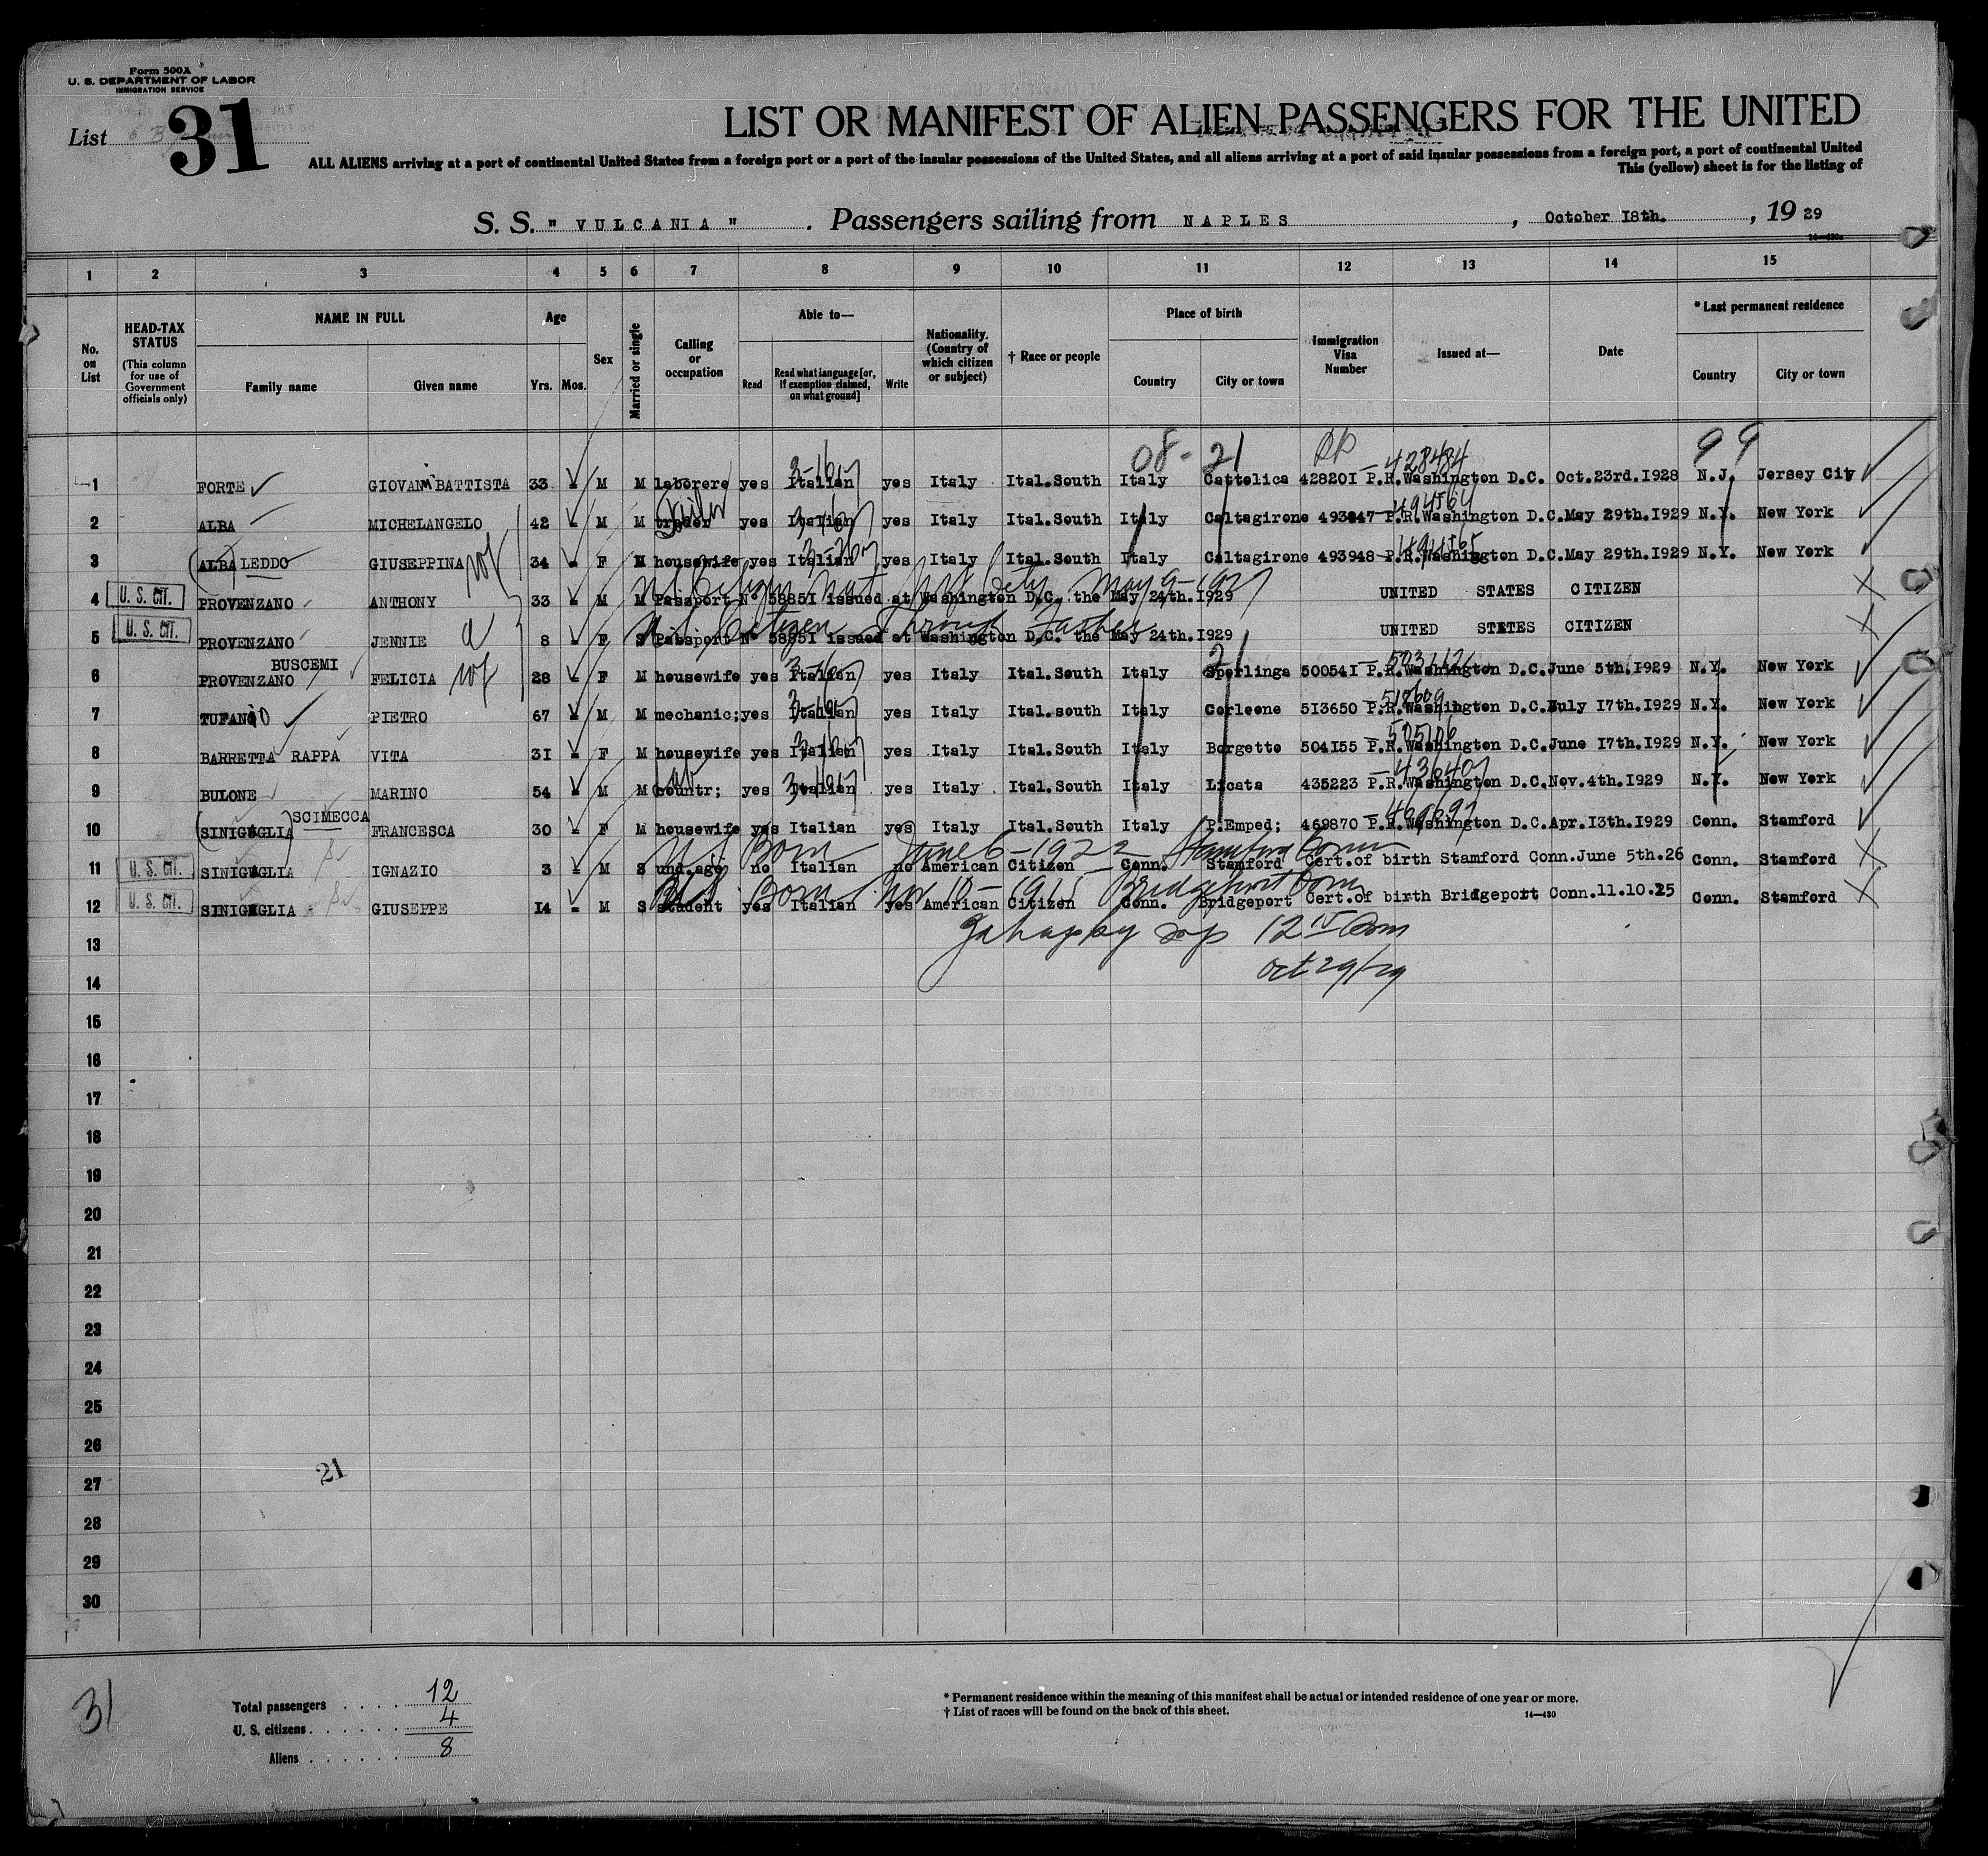 Form 500A
U. S. DEPARTMENT OF LABOR
IMMIGRATION SERVICE
List 31
LIST OR MANIFEST OF ALIEN PASSENGERS FOR THE UNITED
ALL ALIENS arriving at a port of continental United States from a foreign port or a port of the insular possessions of the United States, and all aliens arriving at a port of said insular possessions from a foreign port, a port of continental United
This (yellow) sheet is for the listing of
S. S. " VULCANIA " . Passengers sailing from NAPLES , October 18th. , 19 29
1 2 3 4 5 6 7 8 9 10 11 12 13 14 15
No. on List
HEAD-TAX STATUS (This column for use of Government officials only)
NAME IN FULL Family name Given name
Age Yrs. Mos.
Sex
Married or single
Calling or occupation
Able to— Read Read what language [or, if exemption claimed, on what ground] Write
Nationality. (Country of which citizen or subject)
† Race or people
Place of birth Country City or town
Immigration Visa Number
Issued at—
Date
* Last permanent residence Country City or town
08- 21 99
1 FORTE GIOVANNI BATTISTA 33 - M M laborere yes Italian yes Italy Ital.South Italy Cattolica 428201 P.R.Washington D.C. Oct.23rd.1928 N.J. Jersey City
428484
2 ALBA MICHELANGELO 42 - M M trader yes Italian yes Italy Ital.South Italy Caltagirone 493947 P.R.Washington D.C. May 29th.1929 N.Y. New York
494564
3 (ALBA) LEDDO GIUSEPPINA wf 34 - F M housewife yes Italian yes Italy Ital.South Italy Caltagirone 493948 P.R.Washington D.C. May 29th.1929 N.Y. New York
494565
May 9-1927
4 U. S. CIT. PROVENZANO ANTHONY 33 - M M Passport N° 58851 issued at Washington D.C. the May 24th.1929 UNITED STATES CITIZEN
U.S. Citizen Through Father
5 U. S. CIT. PROVENZANO JENNIE 8 - F S Passport N° 58851 issued at Washington D.C. the May 24th.1929 UNITED STATES CITIZEN
BUSCEMI
6 PROVENZANO FELICIA wf 28 - F M housewife yes Italian yes Italy Ital.South Italy Sperlinga 500541 P.R.Washington D.C. June 5th.1929 N.Y. New York
7 TUFANO PIETRO 67 - M M mechanic; yes Italian yes Italy Ital.south Italy Corleone 513650 P.R.Washington D.C. July 17th.1929 N.Y. New York
8 BARRETTA RAPPA VITA 31 - F M housewife yes Italian yes Italy Ital.South Italy Borgetto 504155 P.R.Washington D.C. June 17th.1929 N.Y. New York
505106
9 BULONE MARINO 54 - M M countr; yes Italian yes Italy Ital.South Italy Licata 435223 P.R.Washington D.C. Nov.4th.1929 N.Y. New York
SCIMECCA
10 (SINIGAGLIA) FRANCESCA 30 - F M housewife yes Italian yes Italy Ital.South Italy P.Emped; 469870 P.R.Washington D.C. Apr.13th.1929 Conn. Stamford
US Born June 6-1922 Stamford Conn
11 U. S. CIT. SINIGAGLIA IGNAZIO 3 - M S und.age no Italian no American Citizen Conn. Stamford Cert.of birth Stamford Conn.June 5th.26 Conn. Stamford
Born Nov 10-1915 Bridgeport Conn
12 U. S. CIT. SINIGAGLIA GIUSEPPE 14 - M S student yes Italian yes American Citizen Conn. Bridgeport Cert.of birth Bridgeport Conn.11.10.15 Conn. Stamford
13
Oct 29/29
14
15
16
17
18
19
20
21
22
23
24
25
26
21
27
28
29
30
31
Total passengers . . . . 12
U. S. citizens . . . . . . 4
Aliens . . . . . . 8
* Permanent residence within the meaning of this manifest shall be actual or intended residence of one year or more.
† List of races will be found on the back of this sheet.
14—430